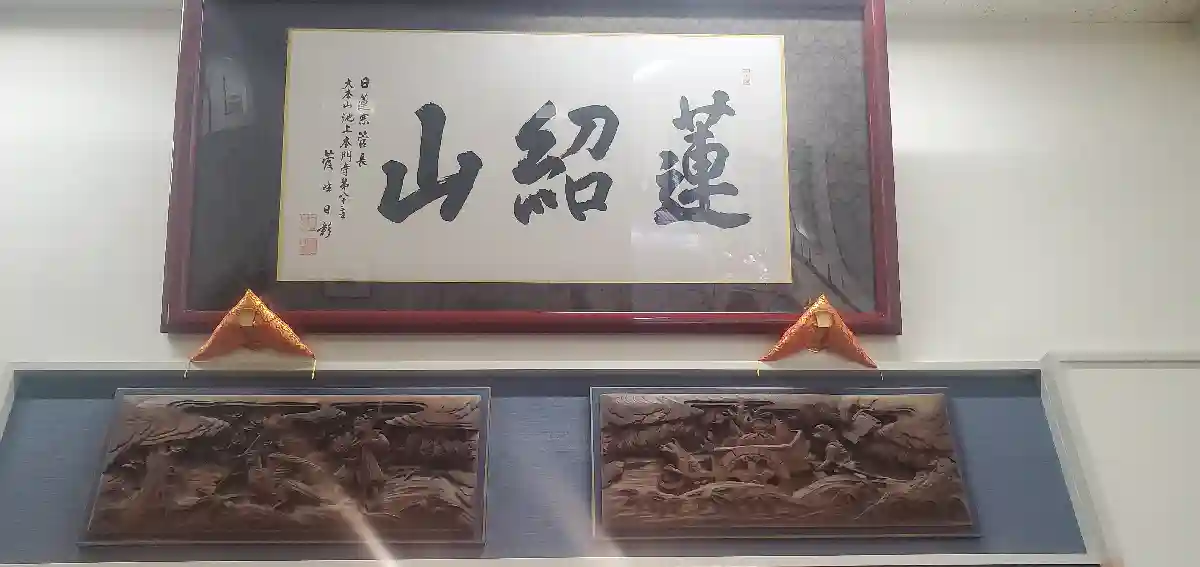 蓮紹山
日蓮宗管長
大本山池上本門寺第八十
菅野日彰